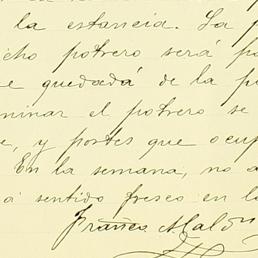 la estancia. La
cho potrero será
quedadá de la
minar el potrero se
, y portes que ocup
En la semana, no a
sentido fresco en la